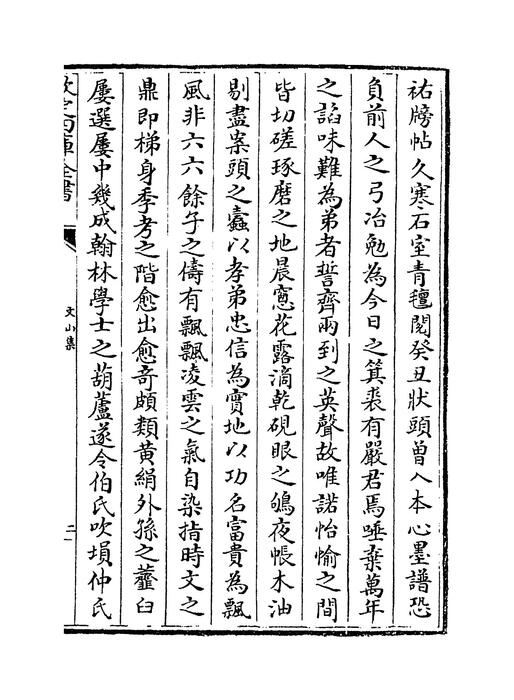 祐牓帖久寒石室青氊閱癸丑狀頭曾入本心墨譜恐
負前人之弓冶勉為今日之箕裘有嚴君焉唾棄萬年
之謟味難為弟者誓齊兩到之英聲故唯諾怡愉之間
皆切磋琢磨之地晨窻花露滴乾硯眼之鴝夜帳木油
剔盡案頭之蠹以孝弟忠信為實地以功名富貴為飄
風非六六餘子之儔有飄飄凌雲之氣自染指時文之
鼎即梯身季考之階愈出愈奇頗類黄絹外孫之虀臼
屢選屢中幾成翰林學士之葫蘆遂令伯氏吹塤仲氏
欽定四庫全書
文山集
二